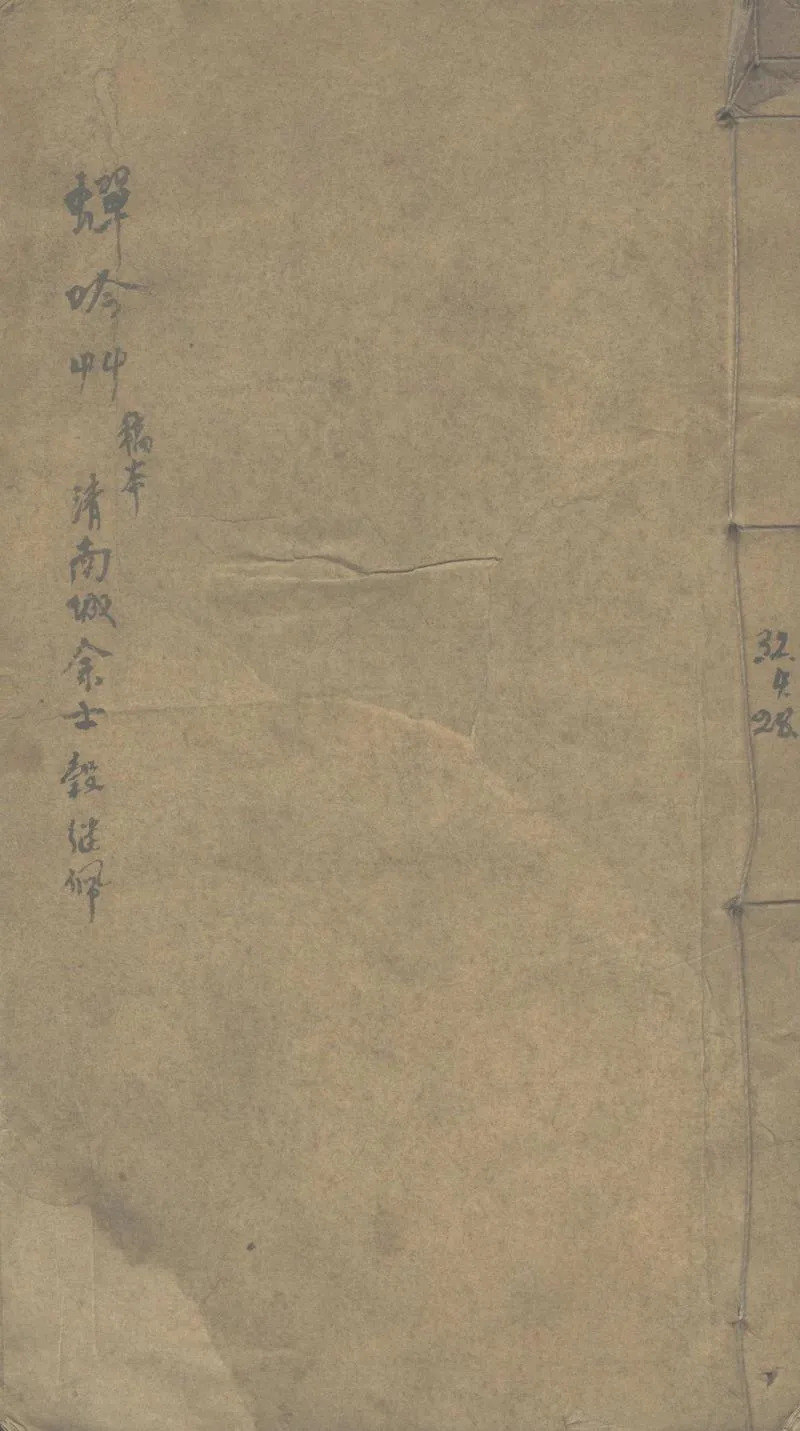 32.
4.
28.
蟬吟艸
稿本
清南城余士穀继佩